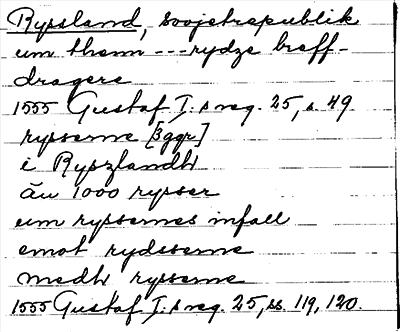 Ryssland, sovjetrepublik
um them --- rydze breff-
dragere
1555 Gustaf I:s reg. 25, s. 49
rysserne [3 ggr]
i Ryszlandh
äu 1000 rysser
um ryssernes infall
emot rydsserne
medh rysserne
1555 Gustaf I:s reg. 25, ss. 119, 120.